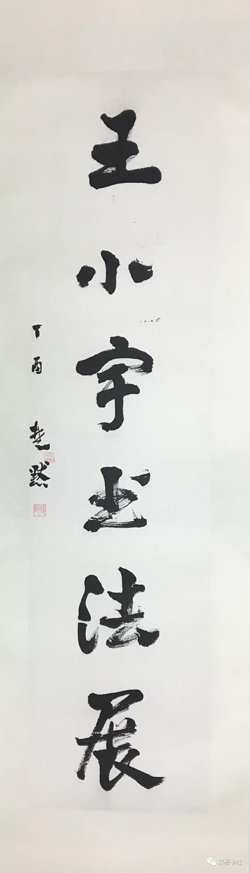 王小宇书法展
丁酉 楚默